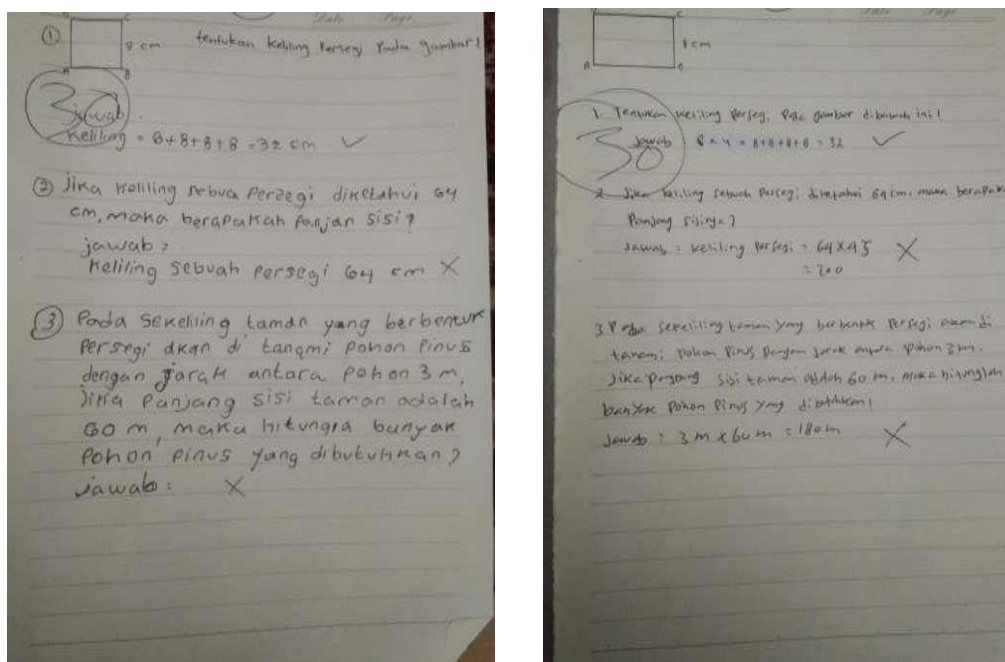 Date Page
D C
① 8 cm tentukan keliling Persegi Pada gambar!
A B
30
jawab
Keliling = 8+8+8+8 = 32 cm ✓
② Jika Kolliling sebua Perzegi diketahui 64
cm, maka berapakah Panjan sisi?
jawab :
Keliling sebuah Persegi 64 cm X
③ Pada sekeliling taman yang berbentuk
Persegi akan di tangmi Pohon Pinus
dengan jarak antara Pohon 3 m,
jika Panjang sisi taman adalah
60 m, maka hitungla banyak
Pohon Pinus yang dibutuhkan?
jawab : X
Date Page
C
8 cm
A B
1. Tentukan keliling Persegi Pada gambar dibawah ini!
30
Jawab 8 x 4 = 8+8+8+8 = 32 ✓
2. Jika keliling sebuah Persegi diketahui 64 cm, maka berapakah
Panjang sisinya?
Jawab = keliling Persegi = 64 X 45 X
= 200
3 Pada sekeliling taman yang berbentuk Persegi akan di
tanami Pohon Pinus Dengan jarak antara Pohon 3 m.
Jika Panjang sisi taman adalah 60 m, maka hitunglah
banyak Pohon Pinus yang dibutuhkan!
Jawab : 3 m x 60 m = 180 m X